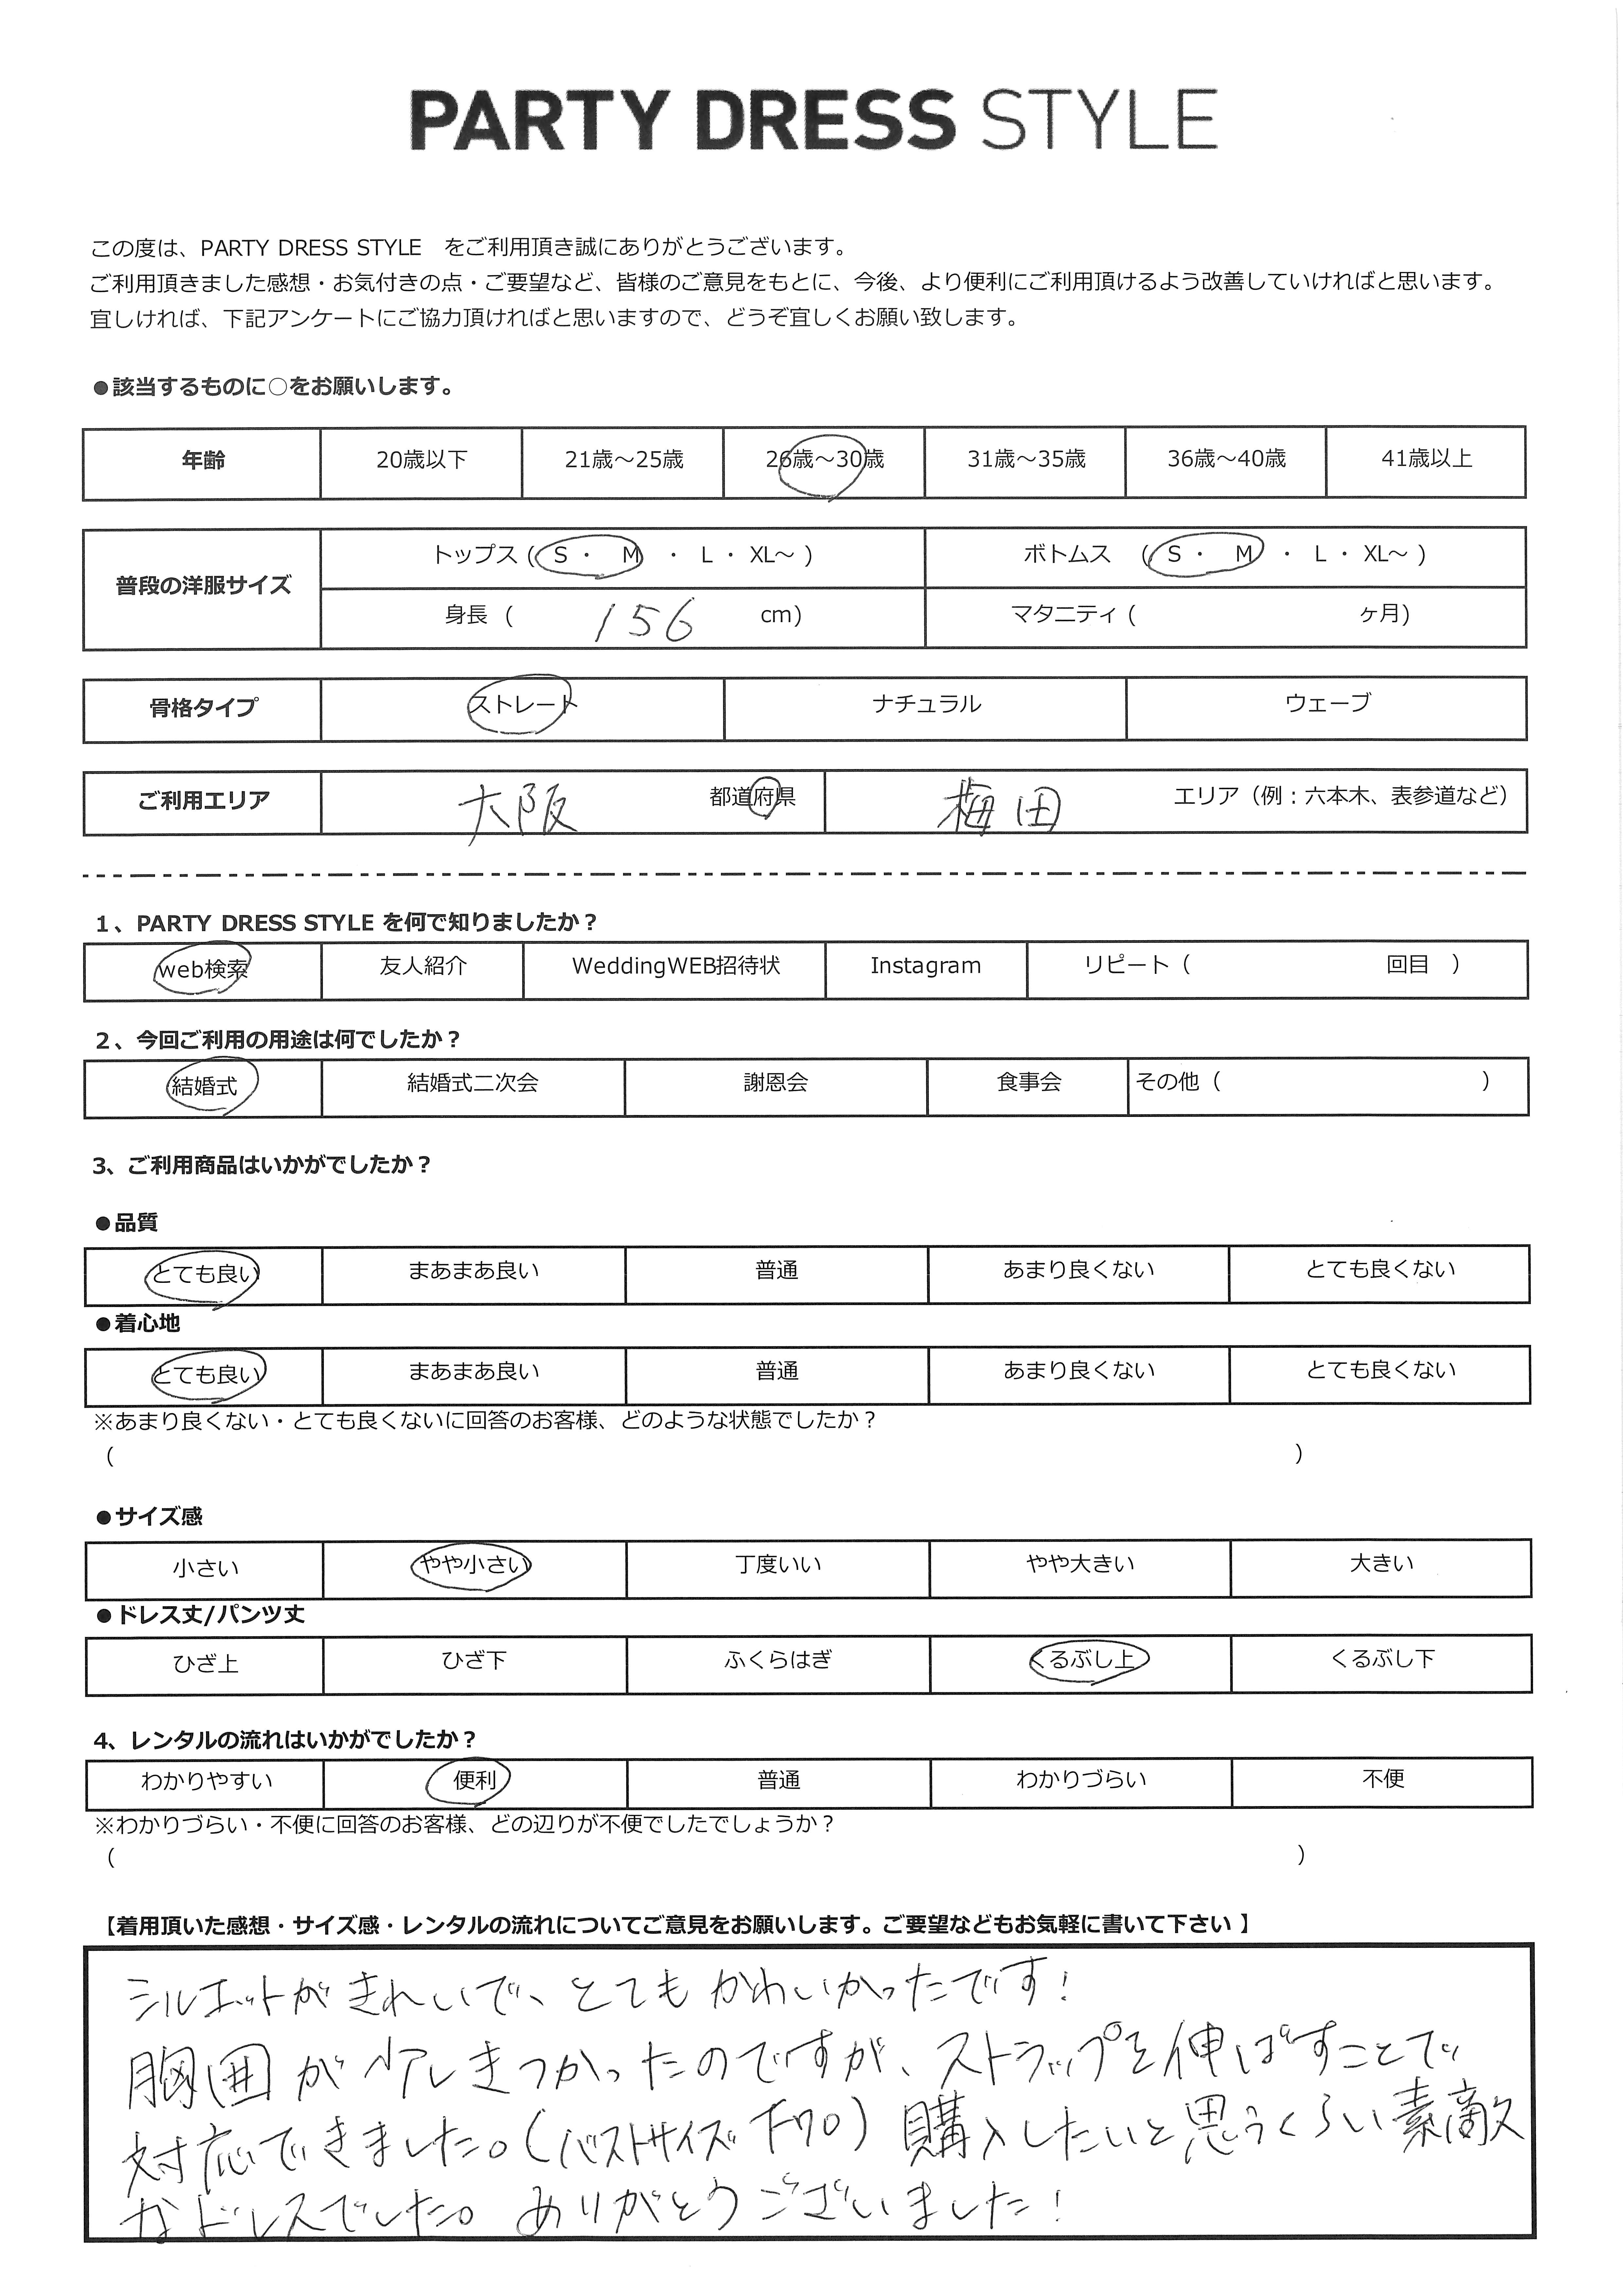 PARTY DRESS STYLE
この度は、PARTY DRESS STYLE　をご利用頂き誠にありがとうございます。
ご利用頂きました感想・お気付きの点・ご要望など、皆様のご意見をもとに、今後、より便利にご利用頂けるよう改善していければと思います。
宜しければ、下記アンケートにご協力頂ければと思いますので、どうぞ宜しくお願い致します。
●該当するものに○をお願いします。
年齢 20歳以下 21歳～25歳 26歳～30歳 31歳～35歳 36歳～40歳 41歳以上
普段の洋服サイズ トップス ( S ・ M ・ L ・ XL～ ) ボトムス ( S ・ M ・ L ・ XL～ )
身長 ( 156 cm) マタニティ ( ヶ月)
骨格タイプ ストレート ナチュラル ウェーブ
ご利用エリア 大阪 都道府県 梅田 エリア（例：六本木、表参道など）
1、PARTY DRESS STYLE を何で知りましたか？
web検索 友人紹介 WeddingWEB招待状 Instagram リピート（ 回目 ）
2、今回ご利用の用途は何でしたか？
結婚式 結婚式二次会 謝恩会 食事会 その他（ ）
3、ご利用商品はいかがでしたか？
●品質
とても良い まあまあ良い 普通 あまり良くない とても良くない
●着心地
とても良い まあまあ良い 普通 あまり良くない とても良くない
※あまり良くない・とても良くないに回答のお客様、どのような状態でしたか？
（ ）
●サイズ感
小さい やや小さい 丁度いい やや大きい 大きい
●ドレス丈/パンツ丈
ひざ上 ひざ下 ふくらはぎ くるぶし上 くるぶし下
4、レンタルの流れはいかがでしたか？
わかりやすい 便利 普通 わかりづらい 不便
※わかりづらい・不便に回答のお客様、どの辺りが不便でしたでしょうか？
（ ）
【着用頂いた感想・サイズ感・レンタルの流れについてご意見をお願いします。ご要望などもお気軽に書いて下さい 】
シルエットがきれいで、とてもかわいかったです！
胸囲が少しきつかったのですが、ストラップを伸ばすことで
対応できました。(バストサイズ F70) 購入したいと思うくらい素敵
なドレスでした。ありがとうございました！